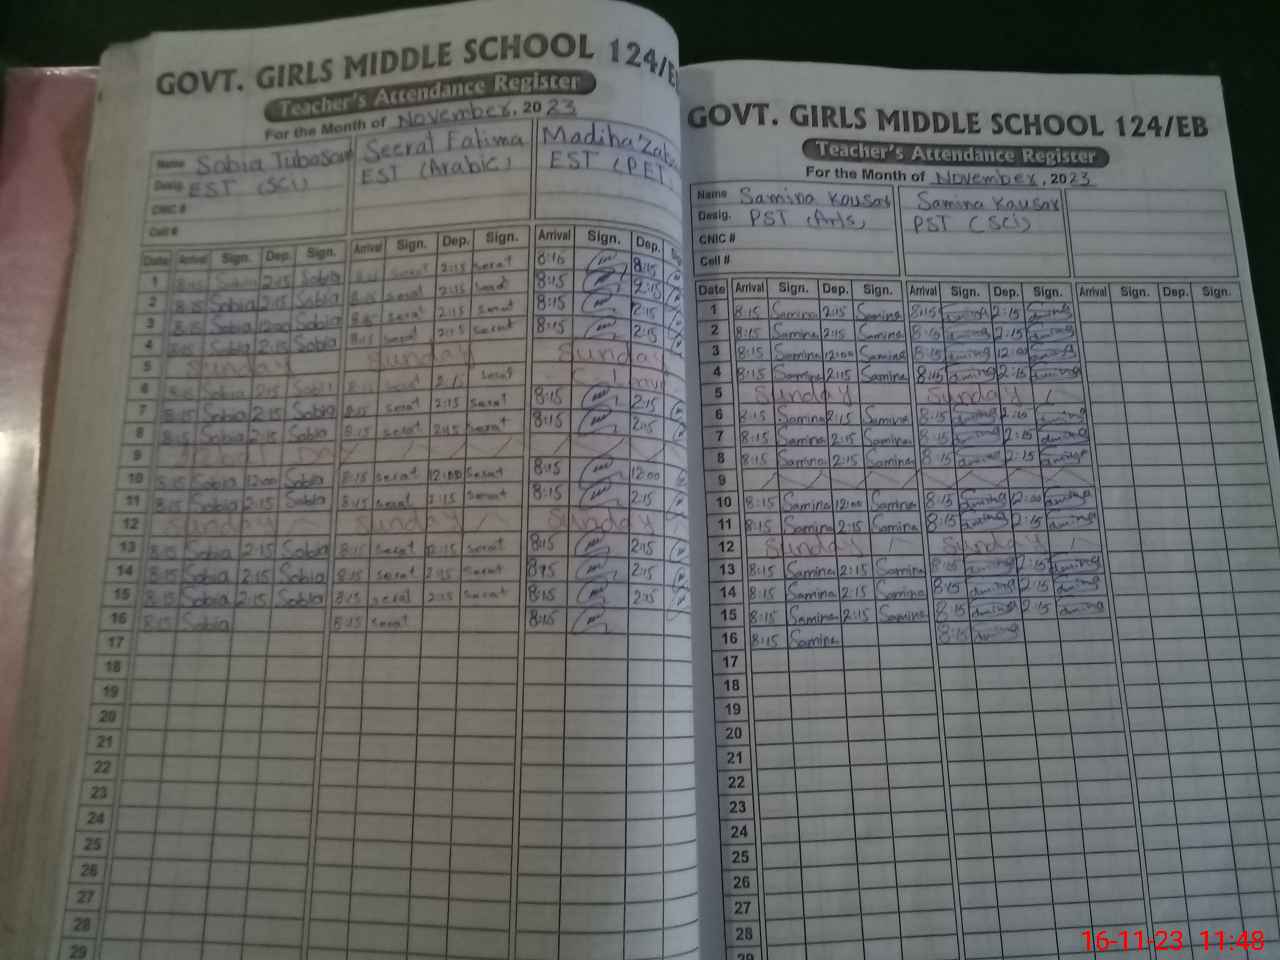 GOVT. GIRLS MIDDLE SCHOOL 124/E
Teacher's Attendance Register
For the Month of November, 2023
Name Sobia Tubasam Seerat Fatima Madiha Zab
Desig. EST (Sci) EST (Arabic) EST (PET)
CNIC #
Cell #
Date Arrival Sign. Dep. Sign. Arrival Sign. Dep. Sign. Arrival Sign. Dep.
1 8:15 Sobia 2:15 Sobia 8:15 serat 2:15 serat 8:15 8:15
2 8:15 Sobia 2:15 Sobia 8:15 serat 2:15 serat 8:15 2:15
3 8:15 Sobia 12:00 Sobia 8:15 serat 2:15 serat 8:15 2:15
4 8:15 Sobia 2:15 Sobia 8:15 serat 2:15 serat 8:15 2:15
5 Sunday Sunday Sunday
6 8:15 Sobia 2:15 Sobia 8:15 serat 2:15 serat
7 8:15 Sobia 2:15 Sobia 8:15 serat 2:15 serat 8:15 2:15
8 8:15 Sobia 2:15 Sobia 8:15 serat 2:15 serat 8:15 2:15
9
10 8:15 Sobia 12:00 Sobia 8:15 serat 12:00 Serat 8:15 12:00
11 8:15 Sobia 2:15 Sobia 8:15 serat 2:15 serat 8:15 2:15
12 Sunday Sunday Sunday
13 8:15 Sobia 2:15 Sobia 8:15 serat 2:15 serat 8:15 2:15
14 8:15 Sobia 2:15 Sobia 8:15 serat 2:15 serat 8:15 2:15
15 8:15 Sobia 2:15 Sobia 8:15 serat 2:15 serat 8:15 2:15
16 8:15 Sobia 8:15 serat 8:15
17
18
19
20
21
22
23
24
25
26
27
28
29
GOVT. GIRLS MIDDLE SCHOOL 124/EB
Teacher's Attendance Register
For the Month of November, 2023
Name Samina Kousar Samina Kausar
Desig. PST (Arts) PST (Sci)
CNIC #
Cell #
Date Arrival Sign. Dep. Sign. Arrival Sign. Dep. Sign. Arrival Sign. Dep. Sign.
1 8:15 Samina 2:15 Samina 8:15 2:15
2 8:15 Samina 2:15 Samina 8:15 2:15
3 8:15 Samina 12:00 Samina 8:15 12:00
4 8:15 Samina 2:15 Samina 8:15 2:15
5 Sunday Sunday
6 8:15 Samina 2:15 Samina 8:15 2:15
7 8:15 Samina 2:15 Samina 8:15 2:15
8 8:15 Samina 2:15 Samina 8:15 2:15
9
10 8:15 Samina 12:00 Samina 8:15 12:00
11 8:15 Samina 2:15 Samina 8:15 2:15
12 Sunday Sunday
13 8:15 Samina 2:15 Samina 8:15 2:15
14 8:15 Samina 2:15 Samina 8:15 2:15
15 8:15 Samina 2:15 Samina 8:15 2:15
16 8:15 Samina 8:15
17
18
19
20
21
22
23
24
25
26
27
28
29
16-11-23 11:48